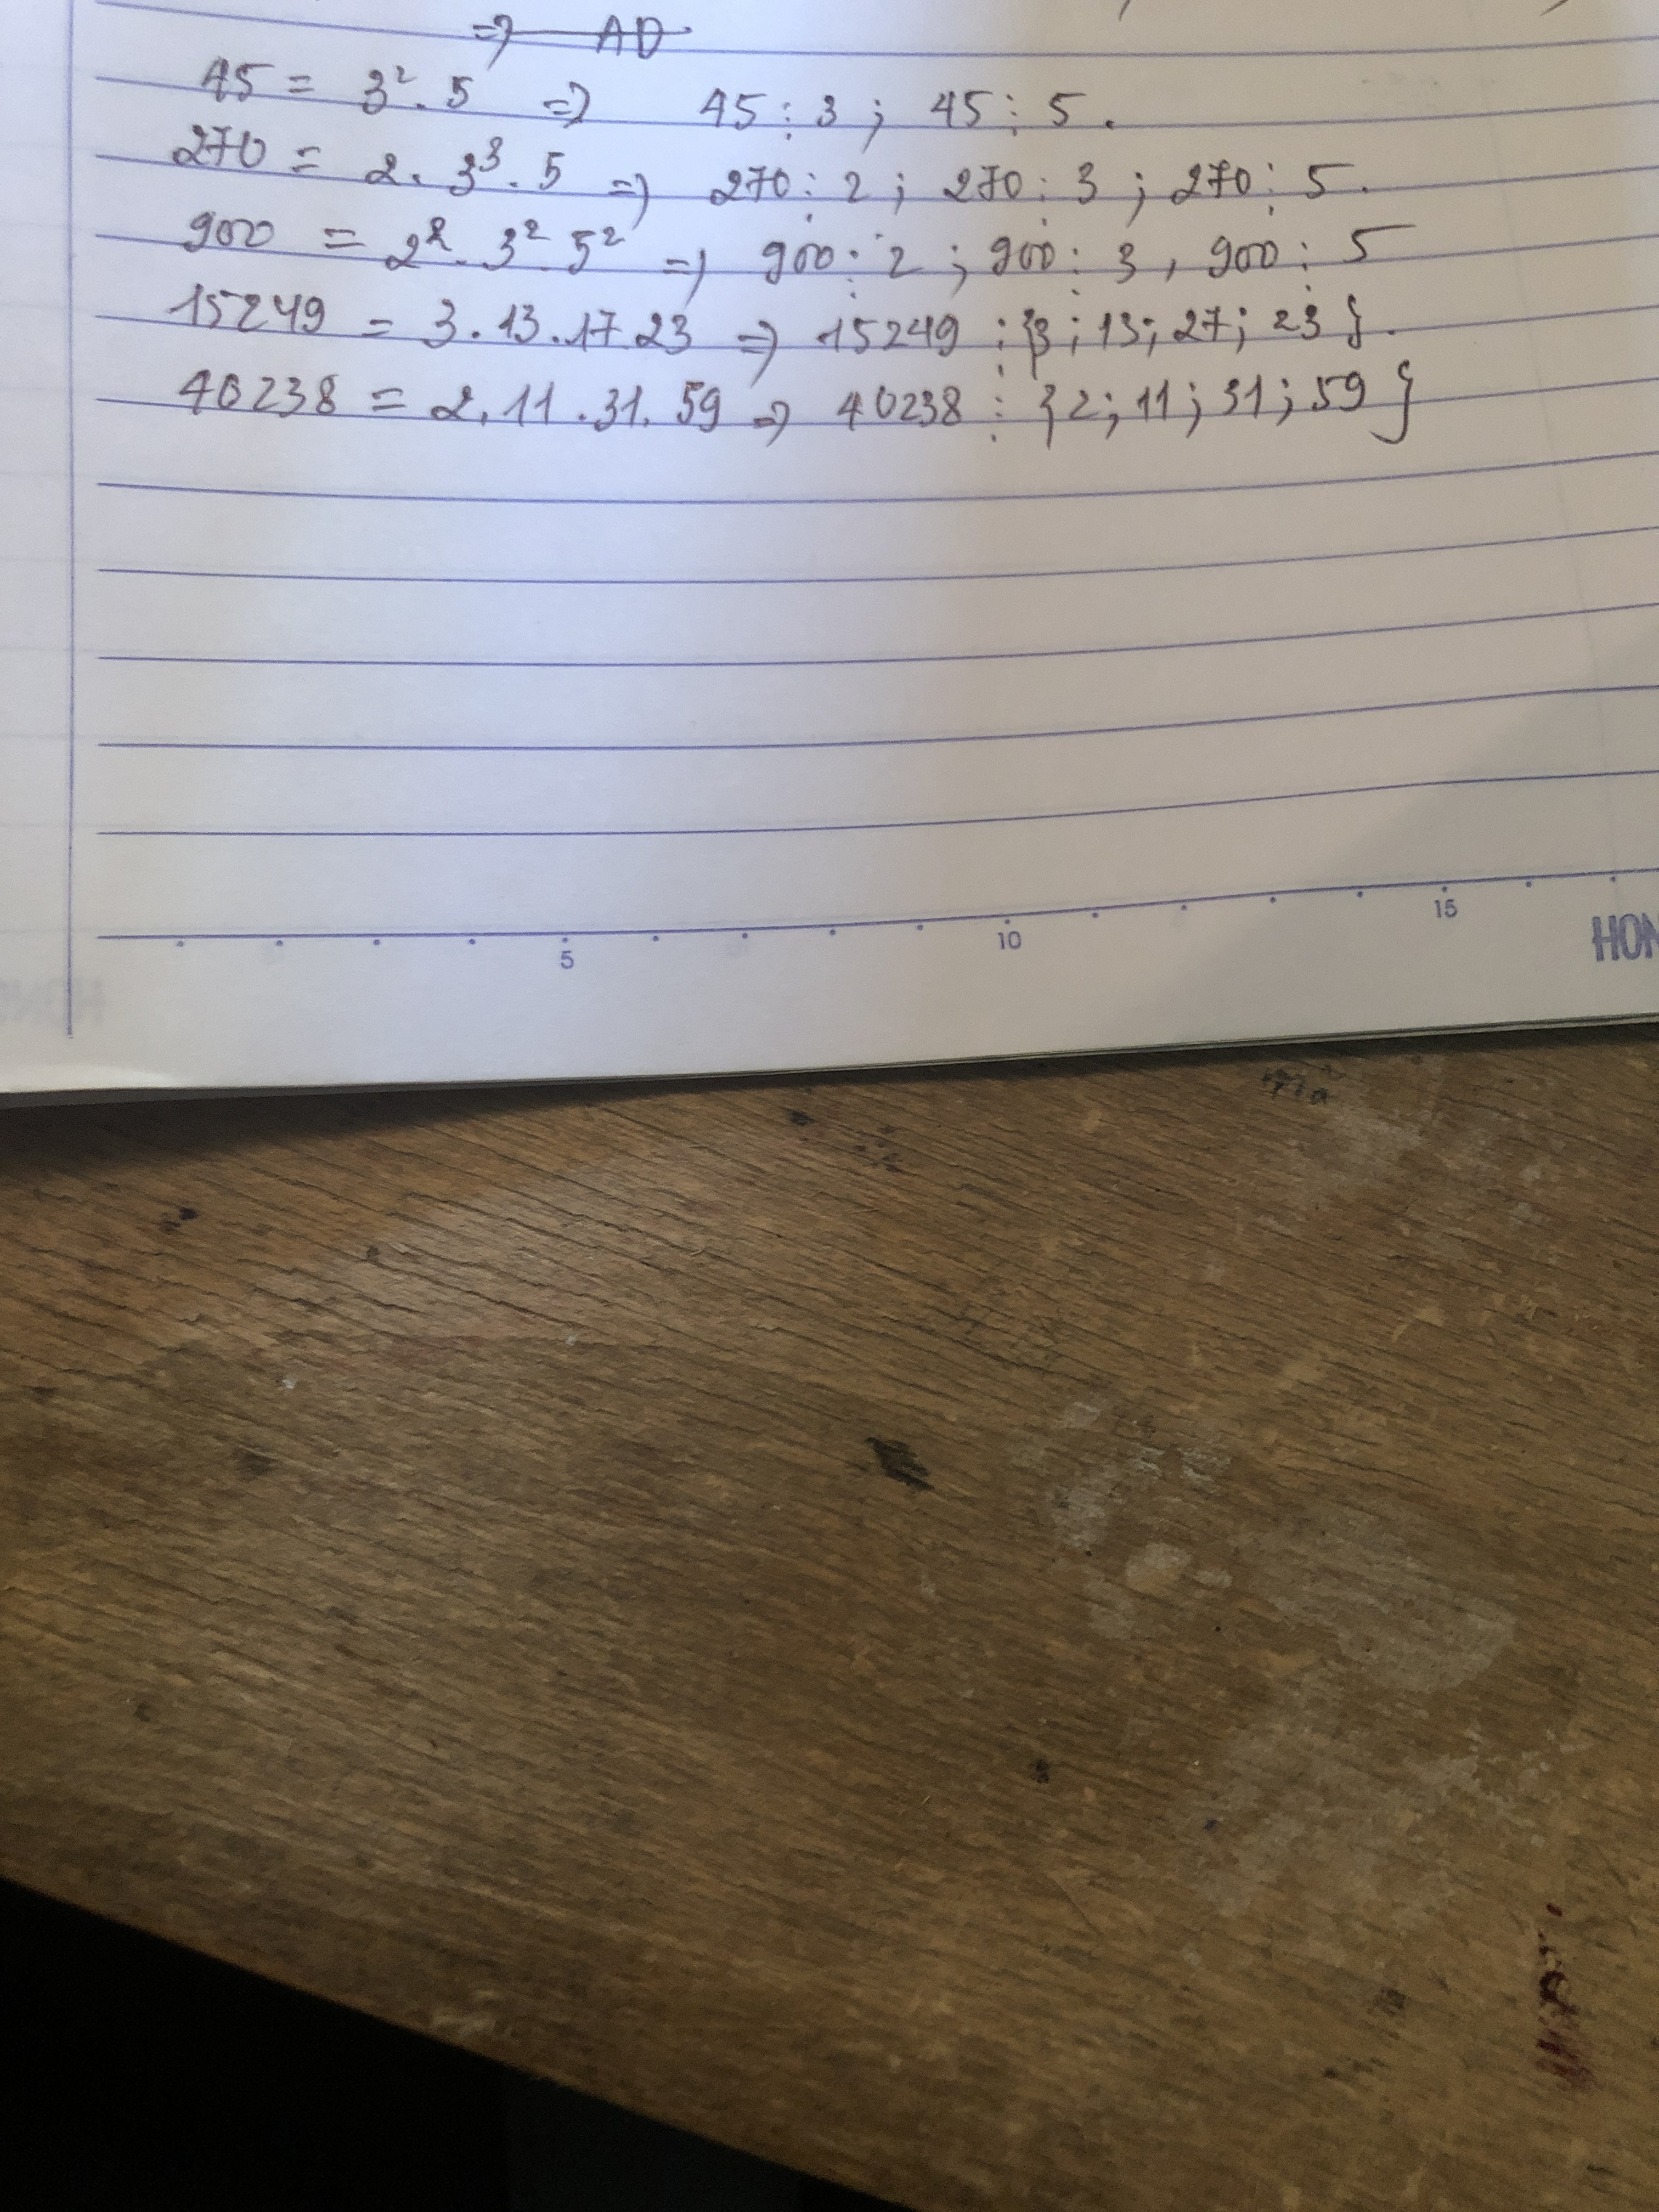 => AD
45 = 3². 5 => 45 ⋮ 3 ; 45 ⋮ 5 .
270 = 2. 3³. 5 => 270 ⋮ 2 ; 270 ⋮ 3 ; 270 ⋮ 5.
900 = 2². 3². 5² => 900 ⋮ 2 ; 900 ⋮ 3 , 900 ⋮ 5
15249 = 3.13.17.23 => 15249 ⋮ {3 ; 13; 27; 23 } .
40238 = 2.11.31.59 => 40238 ⋮ {2; 11; 31; 59 }
5 10 15